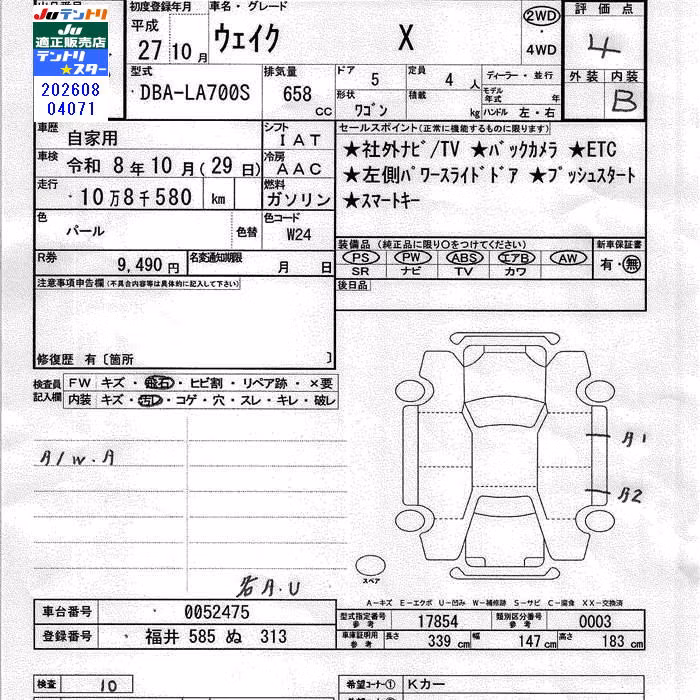 Juテントリ
Ju
適正販売店
テントリ
★スター
202608
04071
初度登録年月
平成
27年10月
車名・グレード
ウェイク X
2WD
・
4WD
評価点
4
外装 内装
B
型式
DBA-LA700S
排気量
658
CC
ドア 5
定員 4人
ディーラー・並行
形状
ワゴン
積載 kg
モデル年式 年
ハンドル 左・右
車歴
自家用
シフト
IAT
車検 令和 8年10月(29日)
冷房
AAC
走行 10万8千580 km
燃料
ガソリン
色
パール
色替
色コード
W24
R券 9,490円
名変通知期限 月 日
セールスポイント(正常に機能するものに限ります)
★社外ナビ/TV ★バックカメラ ★ETC
★左側パワースライドドア ★プッシュスタート
★スマートキー
装備品(純正品に限り○をつけてください)
新車保証書
PS PW ABS エアB AW
SR ナビ TV カワ
有・無
後日品
注意事項申告欄(不具合内容等は具体的に記入して下さい)
修復歴 有〔箇所 〕
検査員
記入欄
FW キズ・飛石・ヒビ割・リペア跡・×要
内装 キズ・汚れ・コゲ・穴・スレ・キレ・破レ
A/W.A
A1
A2
スペア
若A.U
A―キズ E―エクボ U―凹み W―補修跡 S―サビ C―腐食 XX―交換済
車台番号 0052475
登録番号 福井 585 ぬ 313
型式指定番号
参考
17854
類別区分番号
参考
0003
車庫証明用
参考
長さ 339 cm 幅 147 cm 高さ 183 cm
検査 10
希望コーナー① Kカー